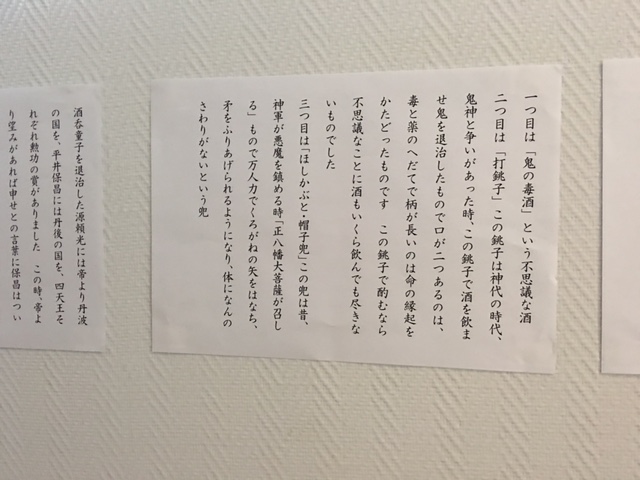 一つ目は「鬼の毒酒」という不思議な酒
二つ目は「打銚子」この銚子は神代の時代、
鬼神と争いがあった時、この銚子で酒を飲ま
せ鬼を退治したもので口が二つあるのは、
毒と薬のへだてで柄が長いのは命の縁起を
かたどったものです　この銚子で酌むなら
不思議なことに酒もいくら飲んでも尽きな
いものでした
三つ目は「ほしかぶと・帽子兜」この兜は昔、
神軍が悪魔を鎮める時「正八幡大菩薩が召し
る」もので万人力でくろがねの矢をはなち、
矛をふりあげられるようになり、体になんの
さわりがないという兜
酒呑童子を退治した源頼光には帝より丹波
の国を、平井保昌には丹後の国を、四天王そ
れぞれ勲功の賞がありました　この時、帝よ
り望みがあれば申せとの言葉に保昌はつい